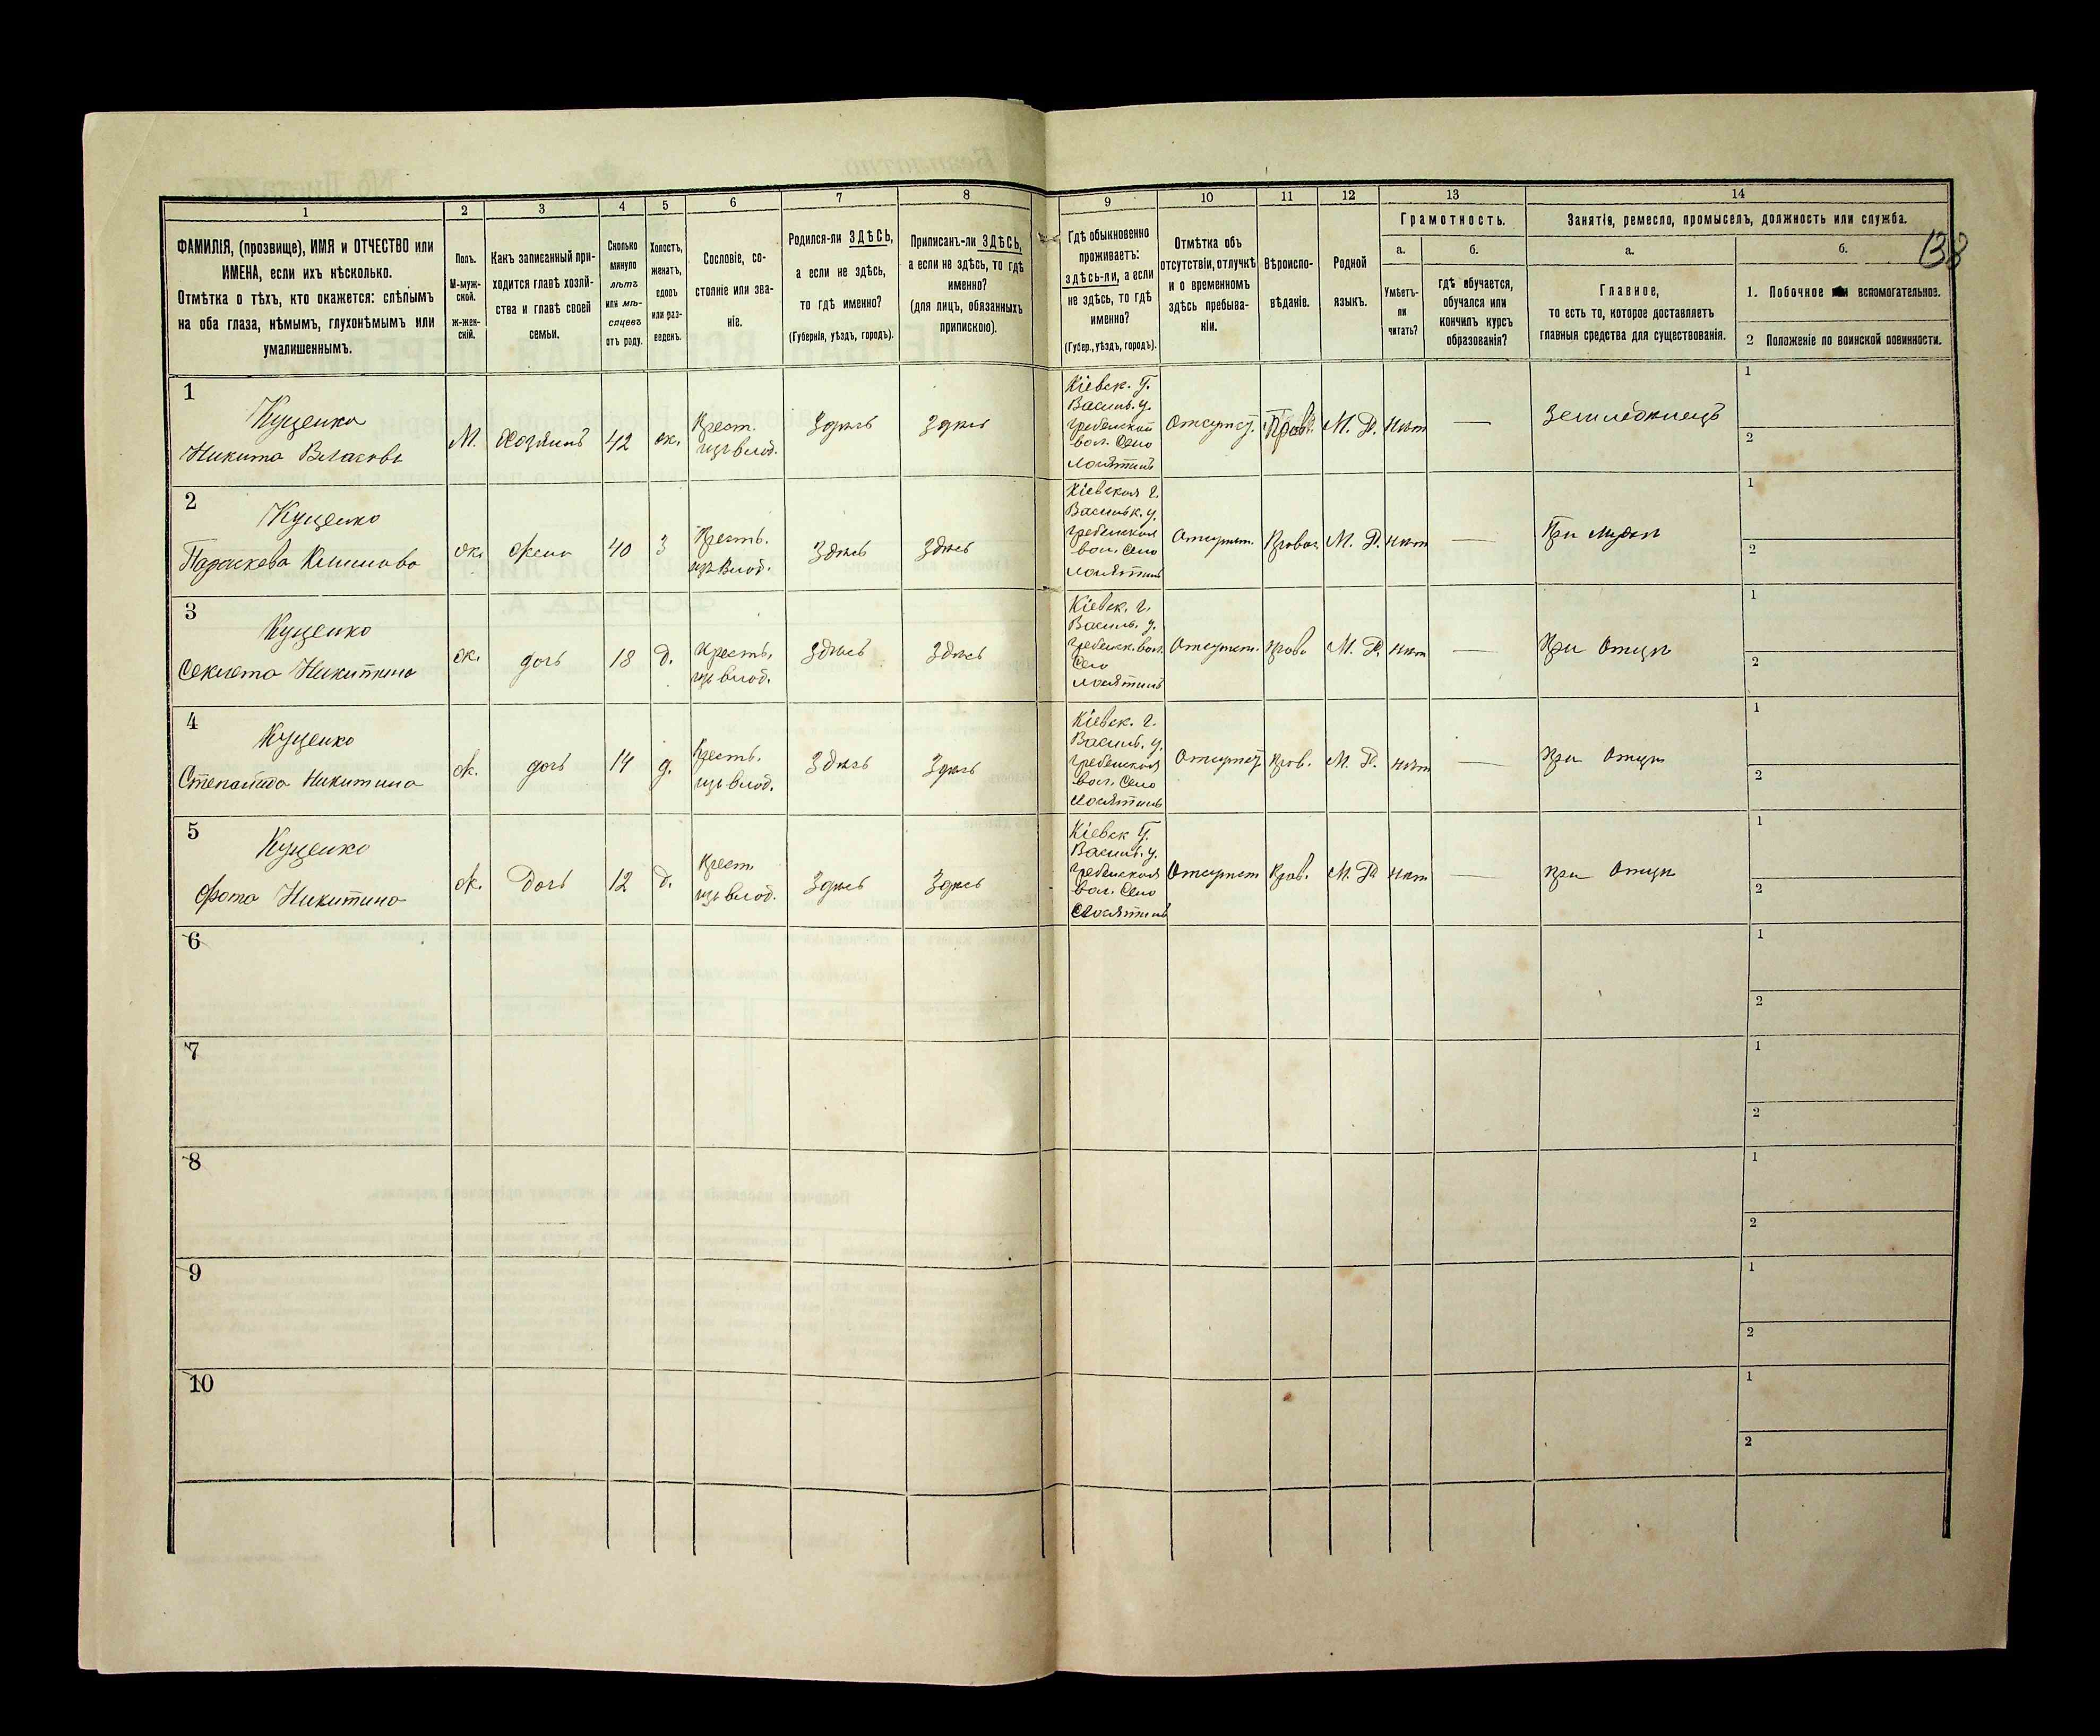 138
1
2
3
4
5
6
7
8
9
10
11
12
13
14
ФАМИЛІЯ, (прозвище), ИМЯ и ОТЧЕСТВО или
ИМЕНА, если ихъ нѣсколько.
Отмѣтка о тѣхъ, кто окажется: слѣпымъ
на оба глаза, нѣмымъ, глухонѣмымъ или
умалишеннымъ.
Полъ.
М-муж-
ской.
ж-жен-
скій.
Какъ записанный при-
ходится главѣ хозяй-
ства и главѣ своей
семьи.
Сколько
минуло
лѣтъ
или мѣ-
сяцевъ
отъ роду.
Холостъ,
женатъ,
вдовъ
или раз-
веденъ.
Сословіе, со-
стояніе или зва-
ніе.
Родился-ли ЗДѢСЬ,
а если не здѣсь,
то гдѣ именно?
(Губернія, уѣздъ, городъ).
Приписанъ-ли ЗДѢСЬ,
а если не здѣсь, то гдѣ
именно?
(для лицъ, обязанныхъ
припискою).
Гдѣ обыкновенно
проживаетъ:
здѣсь-ли, а если
не здѣсь, то гдѣ
именно?
(Губер., уѣздъ, городъ).
Отмѣтка объ
отсутствіи, отлучкѣ
и о временномъ
здѣсь пребыва-
ніи.
Вѣроиспо-
вѣданіе.
Родной
языкъ.
Грамотность.
а.
б.
Умѣетъ-
ли
читать?
гдѣ обучается,
обучался или
кончилъ курсъ
образованія?
Занятія, ремесло, промыселъ, должность или служба.
а.
б.
Главное,
то есть то, которое доставляетъ
главныя средства для существованія.
1. Побочное или вспомогательное.
2 Положеніе по воинской повинности.
1
Куценко
Никита Власовъ
М.
Хозяинъ
42
ж.
Крест.
изъ влад.
Здѣсь
Здѣсь
Кіевск. г.
Василь. у.
Гребенской
вол. Село
Отсутст.
Прав.
М. Р.
Нѣт
—
Земледѣлецъ
1
2
2
Куценко
Параскева Климова
ж.
Жена
40
З
Кресть.
изъ влад.
Здѣсь
Здѣсь
Кіевская г.
Васильк. у.
Гребенская
вол. Село
Отсутст.
Правос
М. Р.
нѣт
—
При мужѣ
1
2
3
Куценко
Секлета Никитина
ж.
дочь
18
д.
Кресть.
изъ влад.
Здѣсь
Здѣсь
Кіевск. г.
Василь. у.
Гребенск. вол.
Село
Отсутст.
Прав
М. Р.
нѣт
—
При Отцѣ
1
2
4
Куценко
Степанида Никитина
ж.
дочь
14
д.
Кресть.
изъ влад.
Здѣсь
Здѣсь
Кіевск. г.
Василь. у.
Гребенская
вол. Село
Отсутст
Прав.
М. Р.
нѣт
—
При Отцѣ
1
2
5
Куценко
Никитина
ж.
Дочь
12
д.
Крест.
изъ влад.
Здѣсь
Здѣсь
Кіевск г.
Василь. у.
Гребенская
вол. Село
Отсутст
Прав.
М. Р.
нѣт
—
при Отцѣ
1
2
6
1
2
7
1
2
8
1
2
9
1
2
10
1
2